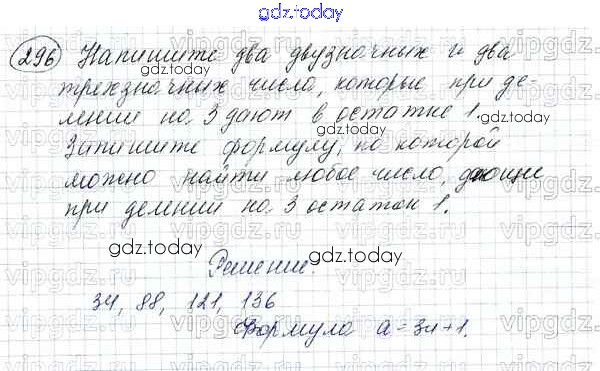 gdz.today
296 Напишите два двузначных и два
gdz.today
трехзначных числа, которые при де-
лении на 3 дают в остатке 1.
gdz.today
gdz.today
Запишите формулу, по которой
можно найти любое число, дающее
при делении на 3 остаток 1.
gdz.today
gdz.today
Решение.
34, 88, 121, 136
gdz.today
Формула a = 3n + 1.